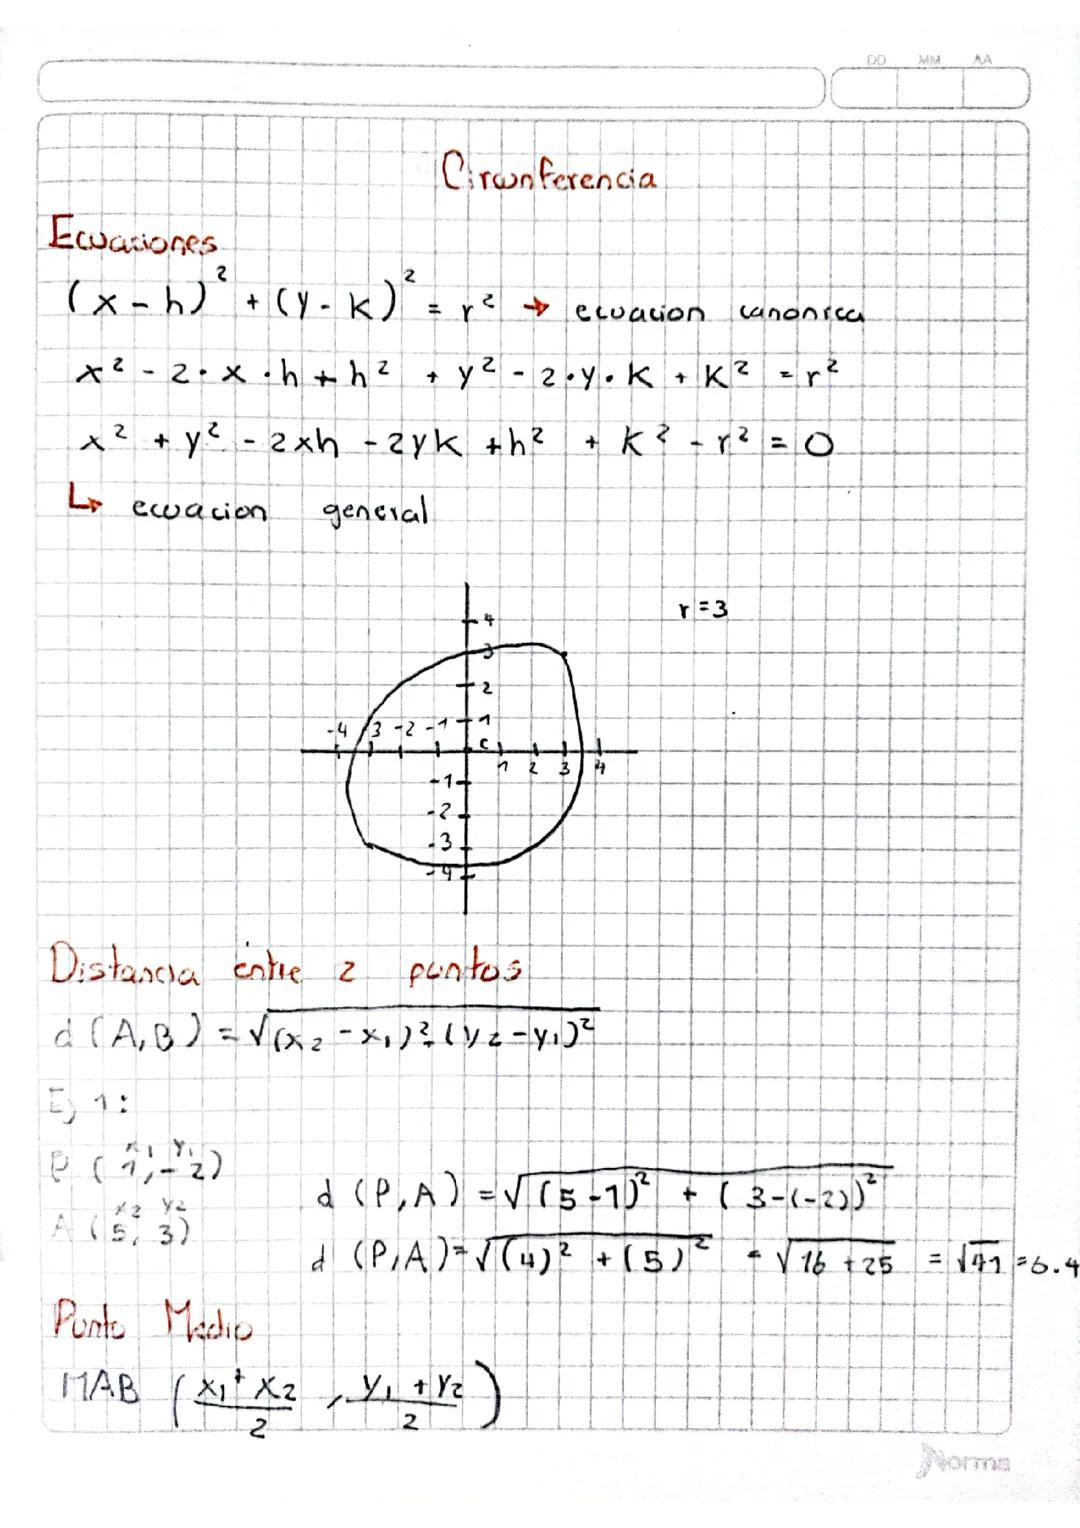 DD MM AA
Circunferencia
Ecuaciones
(x - h)² + (y - k)² = r² → ecuacion canonica
x² - 2·x·h + h² + y² - 2·y·k + k² = r²
x² + y² - 2xh - 2yk + h² + k² - r² = 0
↳ ecuacion general
r = 3
4
3
2
-4 -3 -2 -1 1
c
1 2 3 4
-1
-2
-3
-4
Distancia entre 2 puntos
d (A, B) = √(x₂ - x₁)² + (y₂ - y₁)²
Ej 1:
x₁ y₁
P (1, -2)
x₂ y₂
A (5, 3)
d (P, A) = √(5 - 1)² + (3 - (-2))²
d (P, A) = √(4)² + (5)² = √16 + 25 = √41 = 6.4
Punto Medio
MAB (x₁ + x₂ / 2 , y₁ + y₂ / 2)
Norma